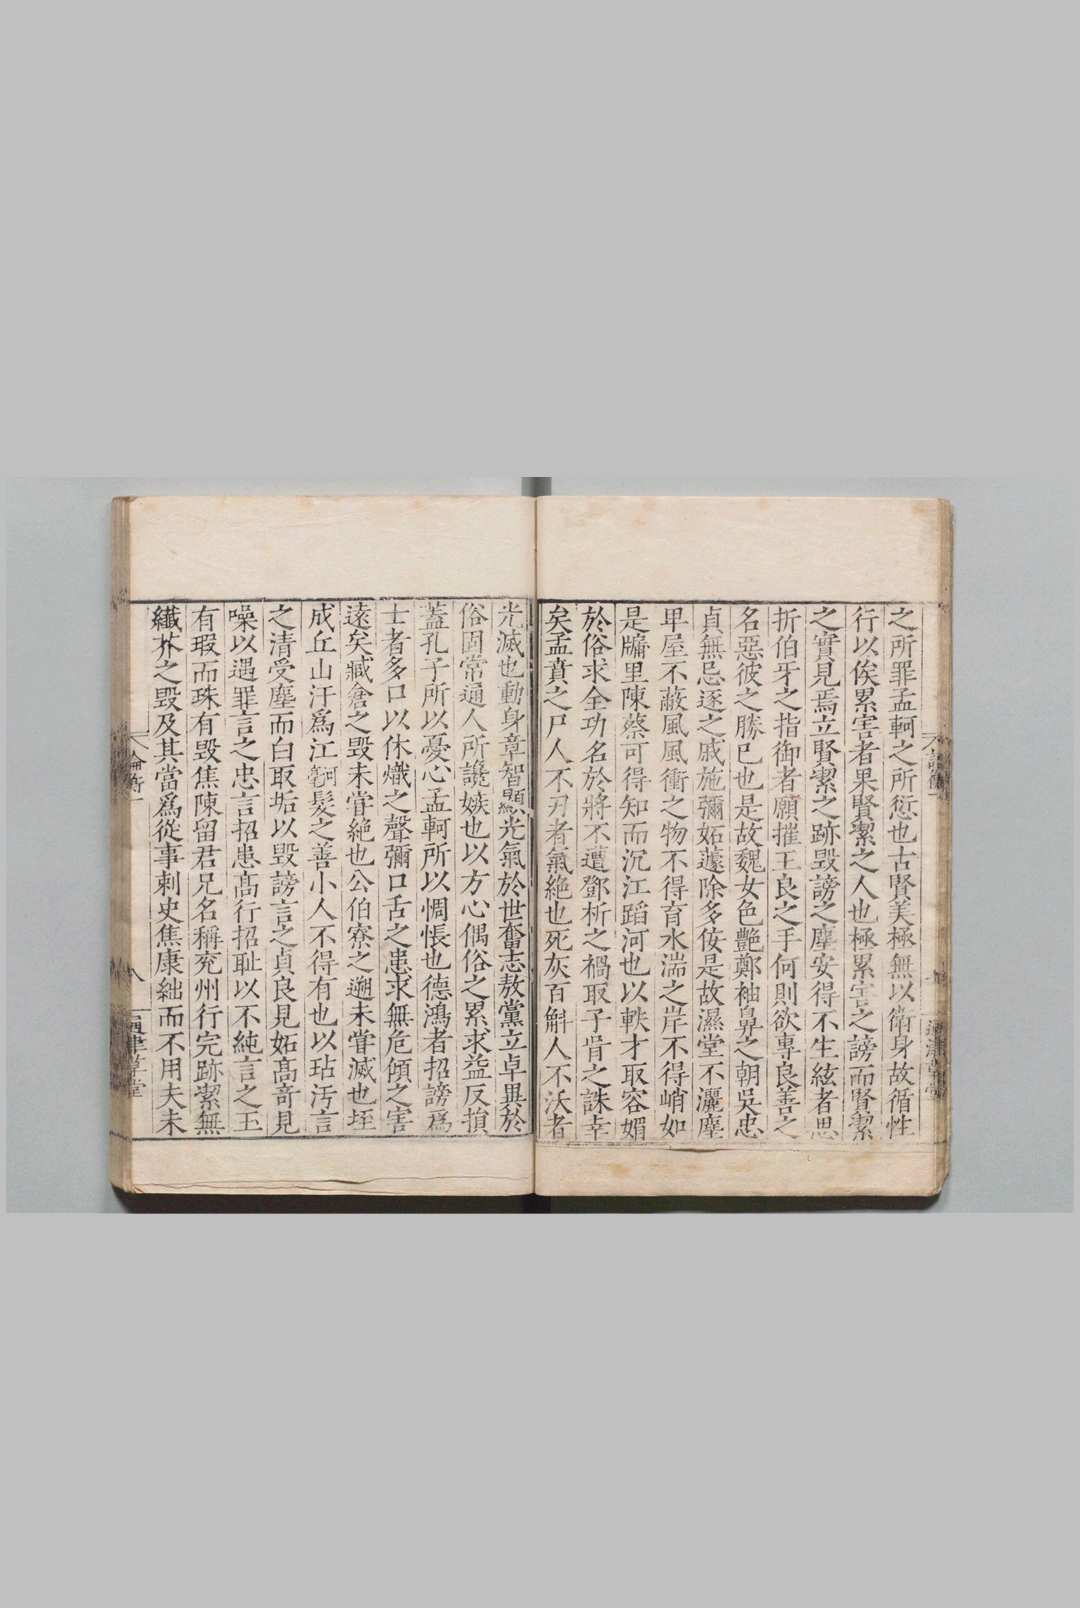 之所罪孟軻之所愆也古賢美極無以衛身故循性
行以俟累害者果賢潔之人也極累害之謗而賢潔
之實見焉立賢潔之跡毀謗之塵安得不生絃者思
折伯牙之指御者願摧王良之手何則欲專良善之
名惡彼之勝已也是故魏女色艷鄭袖鼻之朝吳忠
貞無忌逐之戚施彌妬蘧除多佞是故濕堂不灑塵
卑屋不蔽風風衝之物不得育水湍之岸不得峭如
是牖里陳蔡可得知而沉江蹈河也以軼才取容媚
於俗求全功名於將不遭鄧析之禍取子胥之誅幸
矣孟賁之尸人不刃者氣絶也死灰百斛人不沃者
光滅也動身章智顯光氣於世奮志敖黨立卓異於
俗固常通人所讒嫉也以方心偶俗之累求益反損
蓋孔子所以憂心孟軻所以惆悵也德鴻者招謗爲
士者多口以休熾之聲彌口舌之患求無危傾之害
遠矣臧倉之毀未甞絶也公伯寮之遡未甞滅也垤
成丘山汙爲江河毫髮之善小人不得有也以玷汚言
之清受塵而白取垢以毀謗言之貞良見妬髙竒見
噪以遇罪言之忠言招患髙行招耻以不純言之玉
有瑕而珠有毀焦陳留君兄名稱兖州行完跡潔無
纖芥之毀及其當爲從事刺史焦康絀而不用夫未
論衡一
八
通津草堂